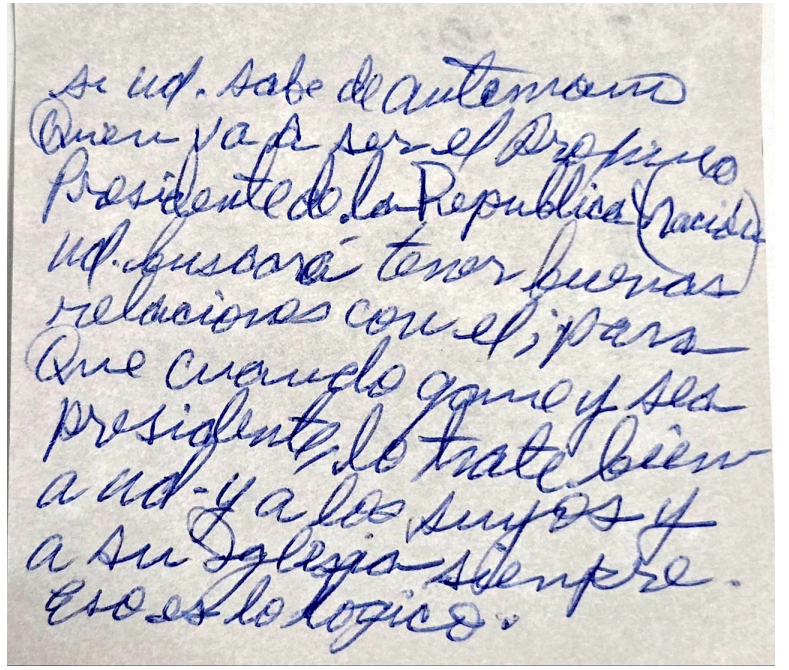 si ud. sabe de antemano
Quien va a ser el proximo
Presidente de la Republica (Nación)
ud. buscará tener buenas
relaciones con el; para
Que cuando gane y sea
presidente, lo trate bien
a ud - y a los suyos y
a su Iglesia siempre.
Eso es lo logico.